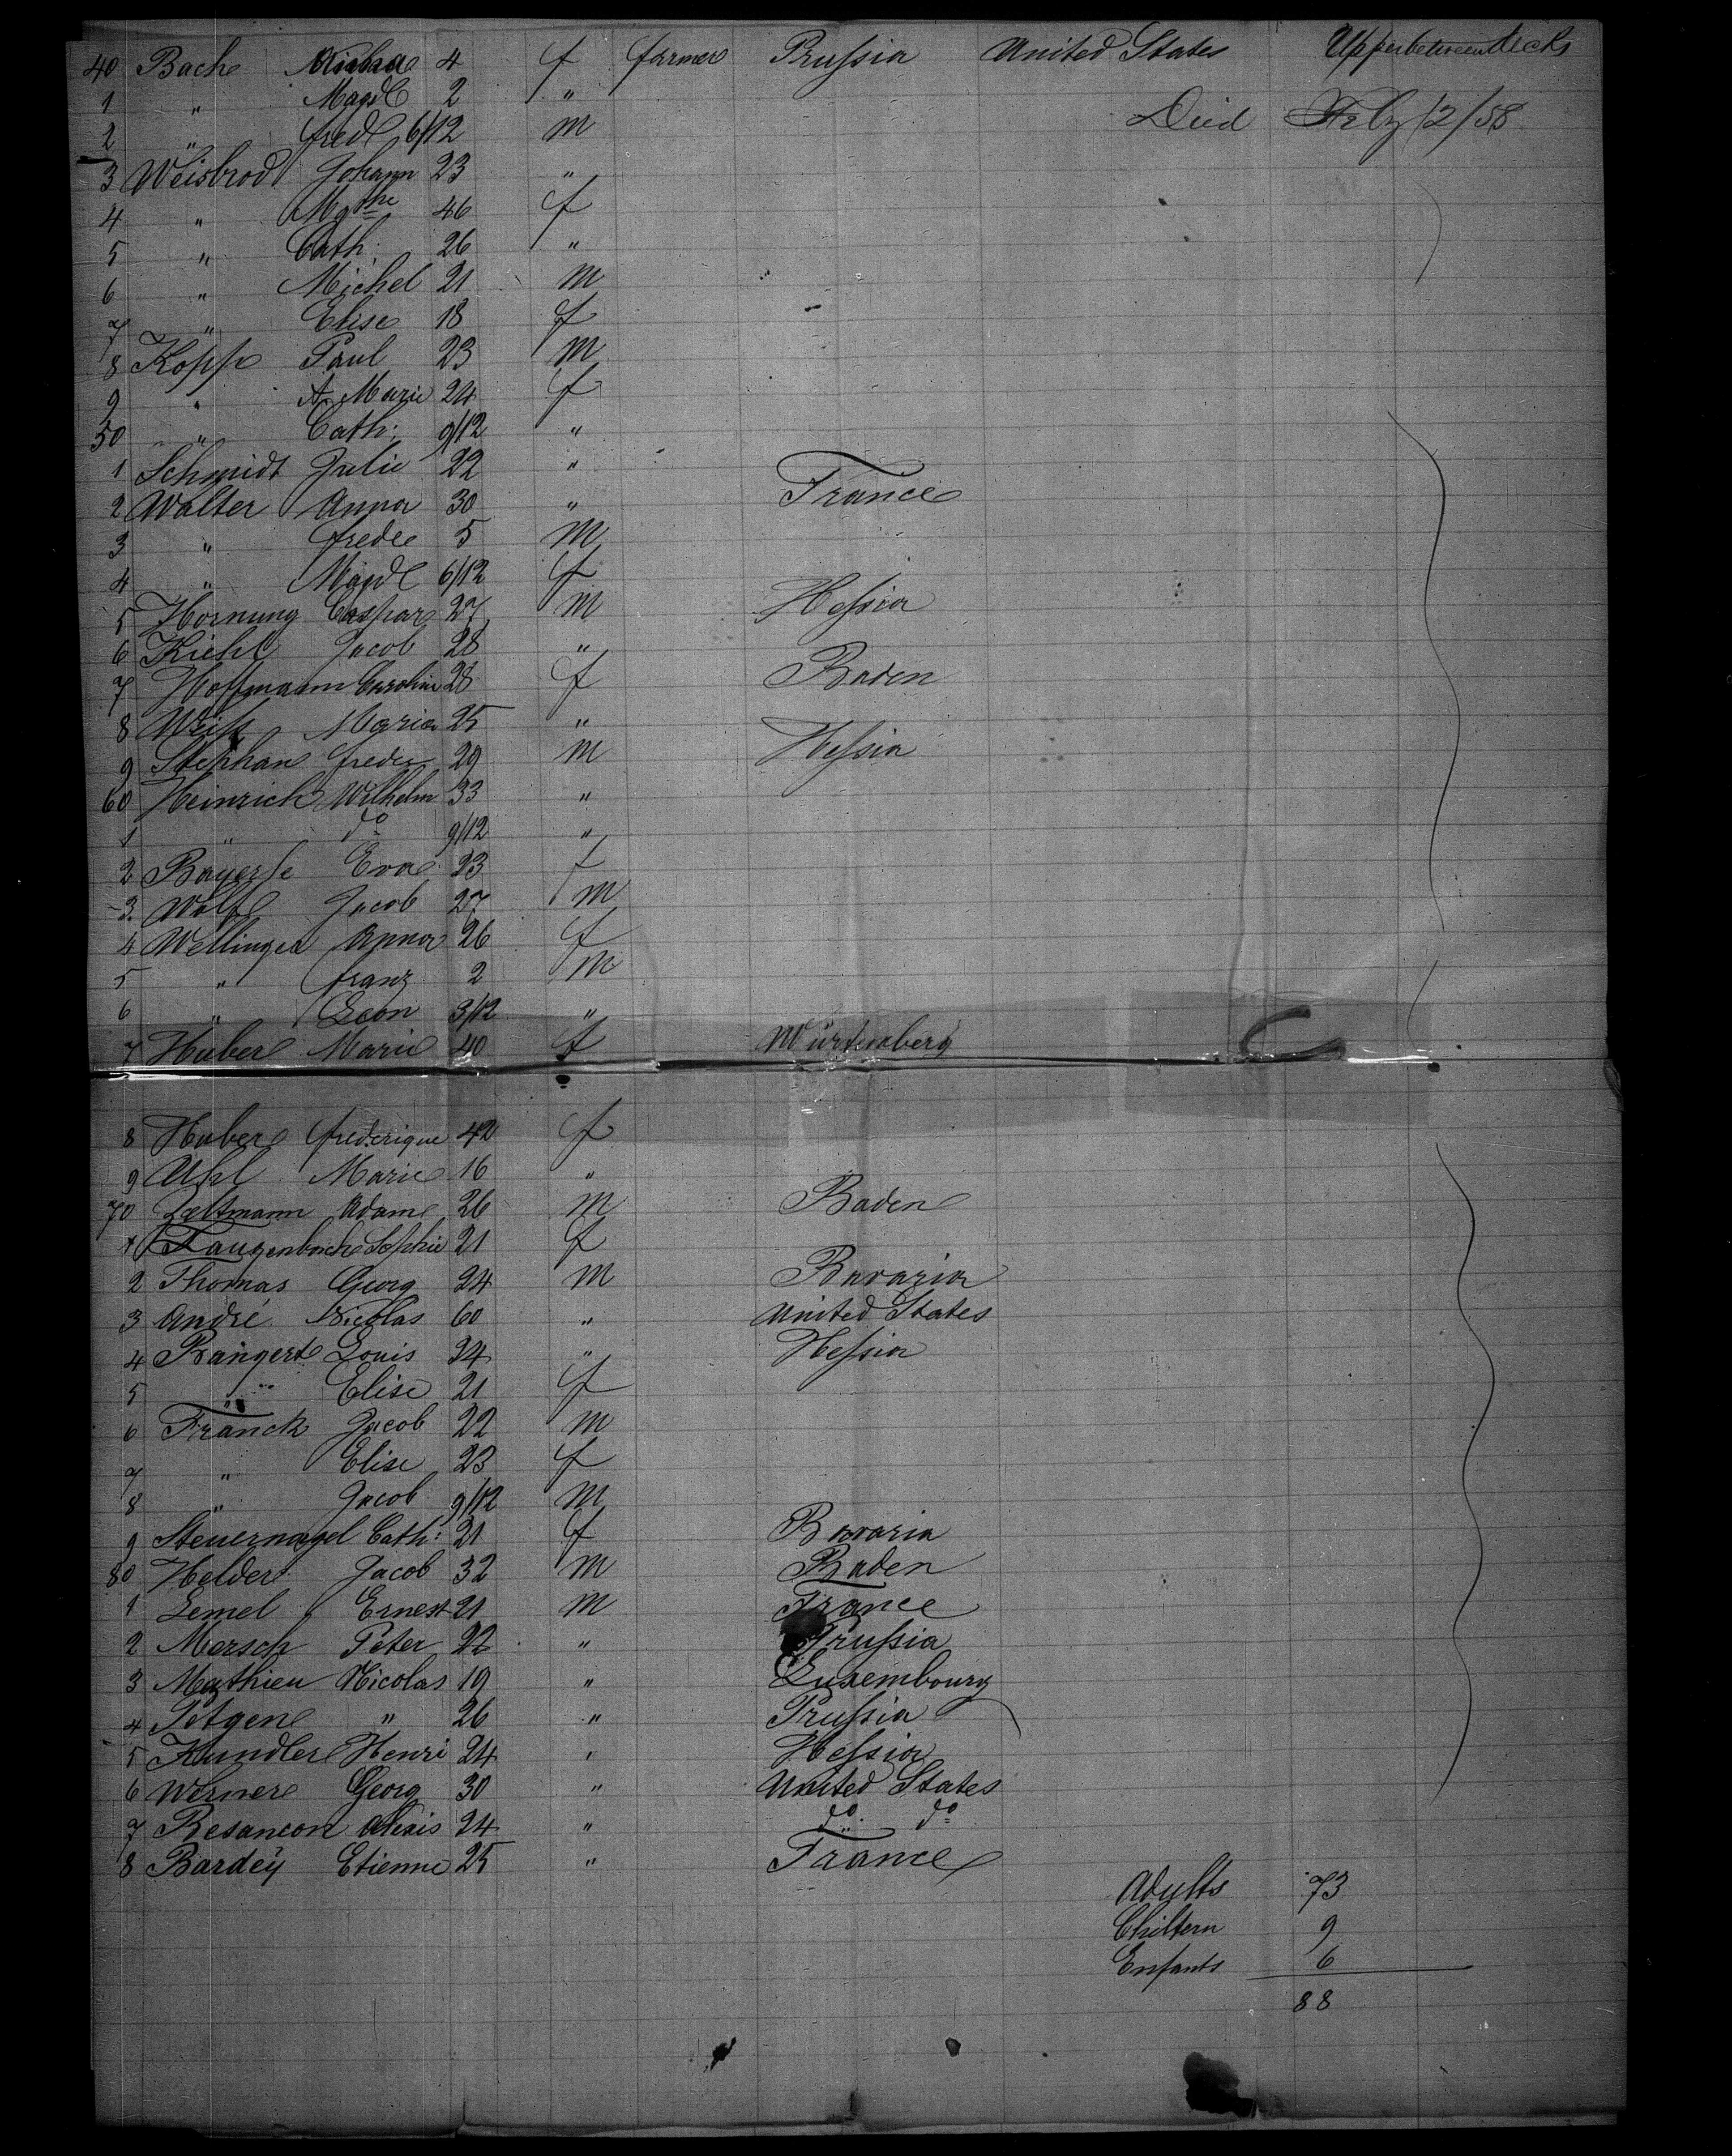 40 Bach 4 f farmer Prussia United States Upper between decks
1 " Magd 2 "
2 " fred 6/12 m Died Feby 12/58
3 Weisbrod Johann 23 "
4 " Mgthe 46 f
5 " Cath: 26 "
6 " Michel 21 m
7 " Elise 18 f
8 Kopp Paul 23 m
9 " A. Marie 24 f
50 " Cath: 9/12 "
1 Schmidt Julie 22 "
2 Walter Anna 30 " France
3 " frede 5 m
4 " Magd 6/12 f
5 Hornung Caspar 27 m Hessia
6 Kiehl Jacob 28 "
7 Hoffmann Caroline 28 f Baden
8 Weiss Maria 25 "
9 Stephan freder 29 m Hessia
60 Heinrich Wilhelm 33 "
1 " do 9/12 "
2 Eva 23 f
3 Wolf Jacob 27 m
4 Wellinger Anna 26 f
5 " franz 2 m
6 " Leon 3/12 "
7 Huber Marie 40 f Würtemberg
8 Huber frederique 42 f
9 Uhl Marie 16 "
70 Zeltmann Adam 26 m Baden
1 Langenbach Sophie 21 f
2 Thomas Georg 24 m Bavaria
3 André Nicolas 60 " United States
4 Bangert Louis 24 " Hessia
5 " Elise 21 f
6 Franck Jacob 22 m
7 " Elise 23 f
8 " Jacob 9/12 m
9 Steuernagel Cath: 21 f Bavaria
80 Helder Jacob 32 m Baden
1 Lemel Ernest 21 m France
2 Mersch Peter 22 " Prussia
3 Mathieu Nicolas 19 " Luxembourg
4 Petgen " 26 " Prussia
5 Kundler Henri 24 " Hessia
6 Werner Georg 30 " United States
7 Besancon Alexis 24 " do do
8 Bardey Etienne 25 " France
Adults 73
Chiltern 9
Enfants 6
88